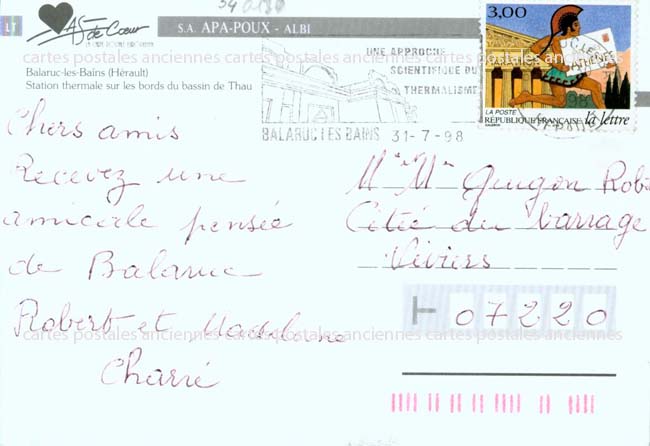 34 0130
LT
AS de Cœur
S.A. APA-POUX - ALBI
Balaruc-les-Bains (Hérault)
Station thermale sur les bords du bassin de Thau
UNE APPROCHE
SCIENTIFIQUE DU
THERMALISME
BALARUC LES BAINS 31-7-98
3,00
LA POSTE
RÉPUBLIQUE FRANÇAISE
la lettre
cartes postales anciennes cartes postales anciennes cartes postales anciennes
Chers amis
Recevez une
amicale pensée
de Balaruc
Robert et Madeleine
Charré
Mr Mme Guigon Robe
Cité du barrage
Viviers
07220
cartes postales anciennes cartes postales anciennes cartes postales anciennes